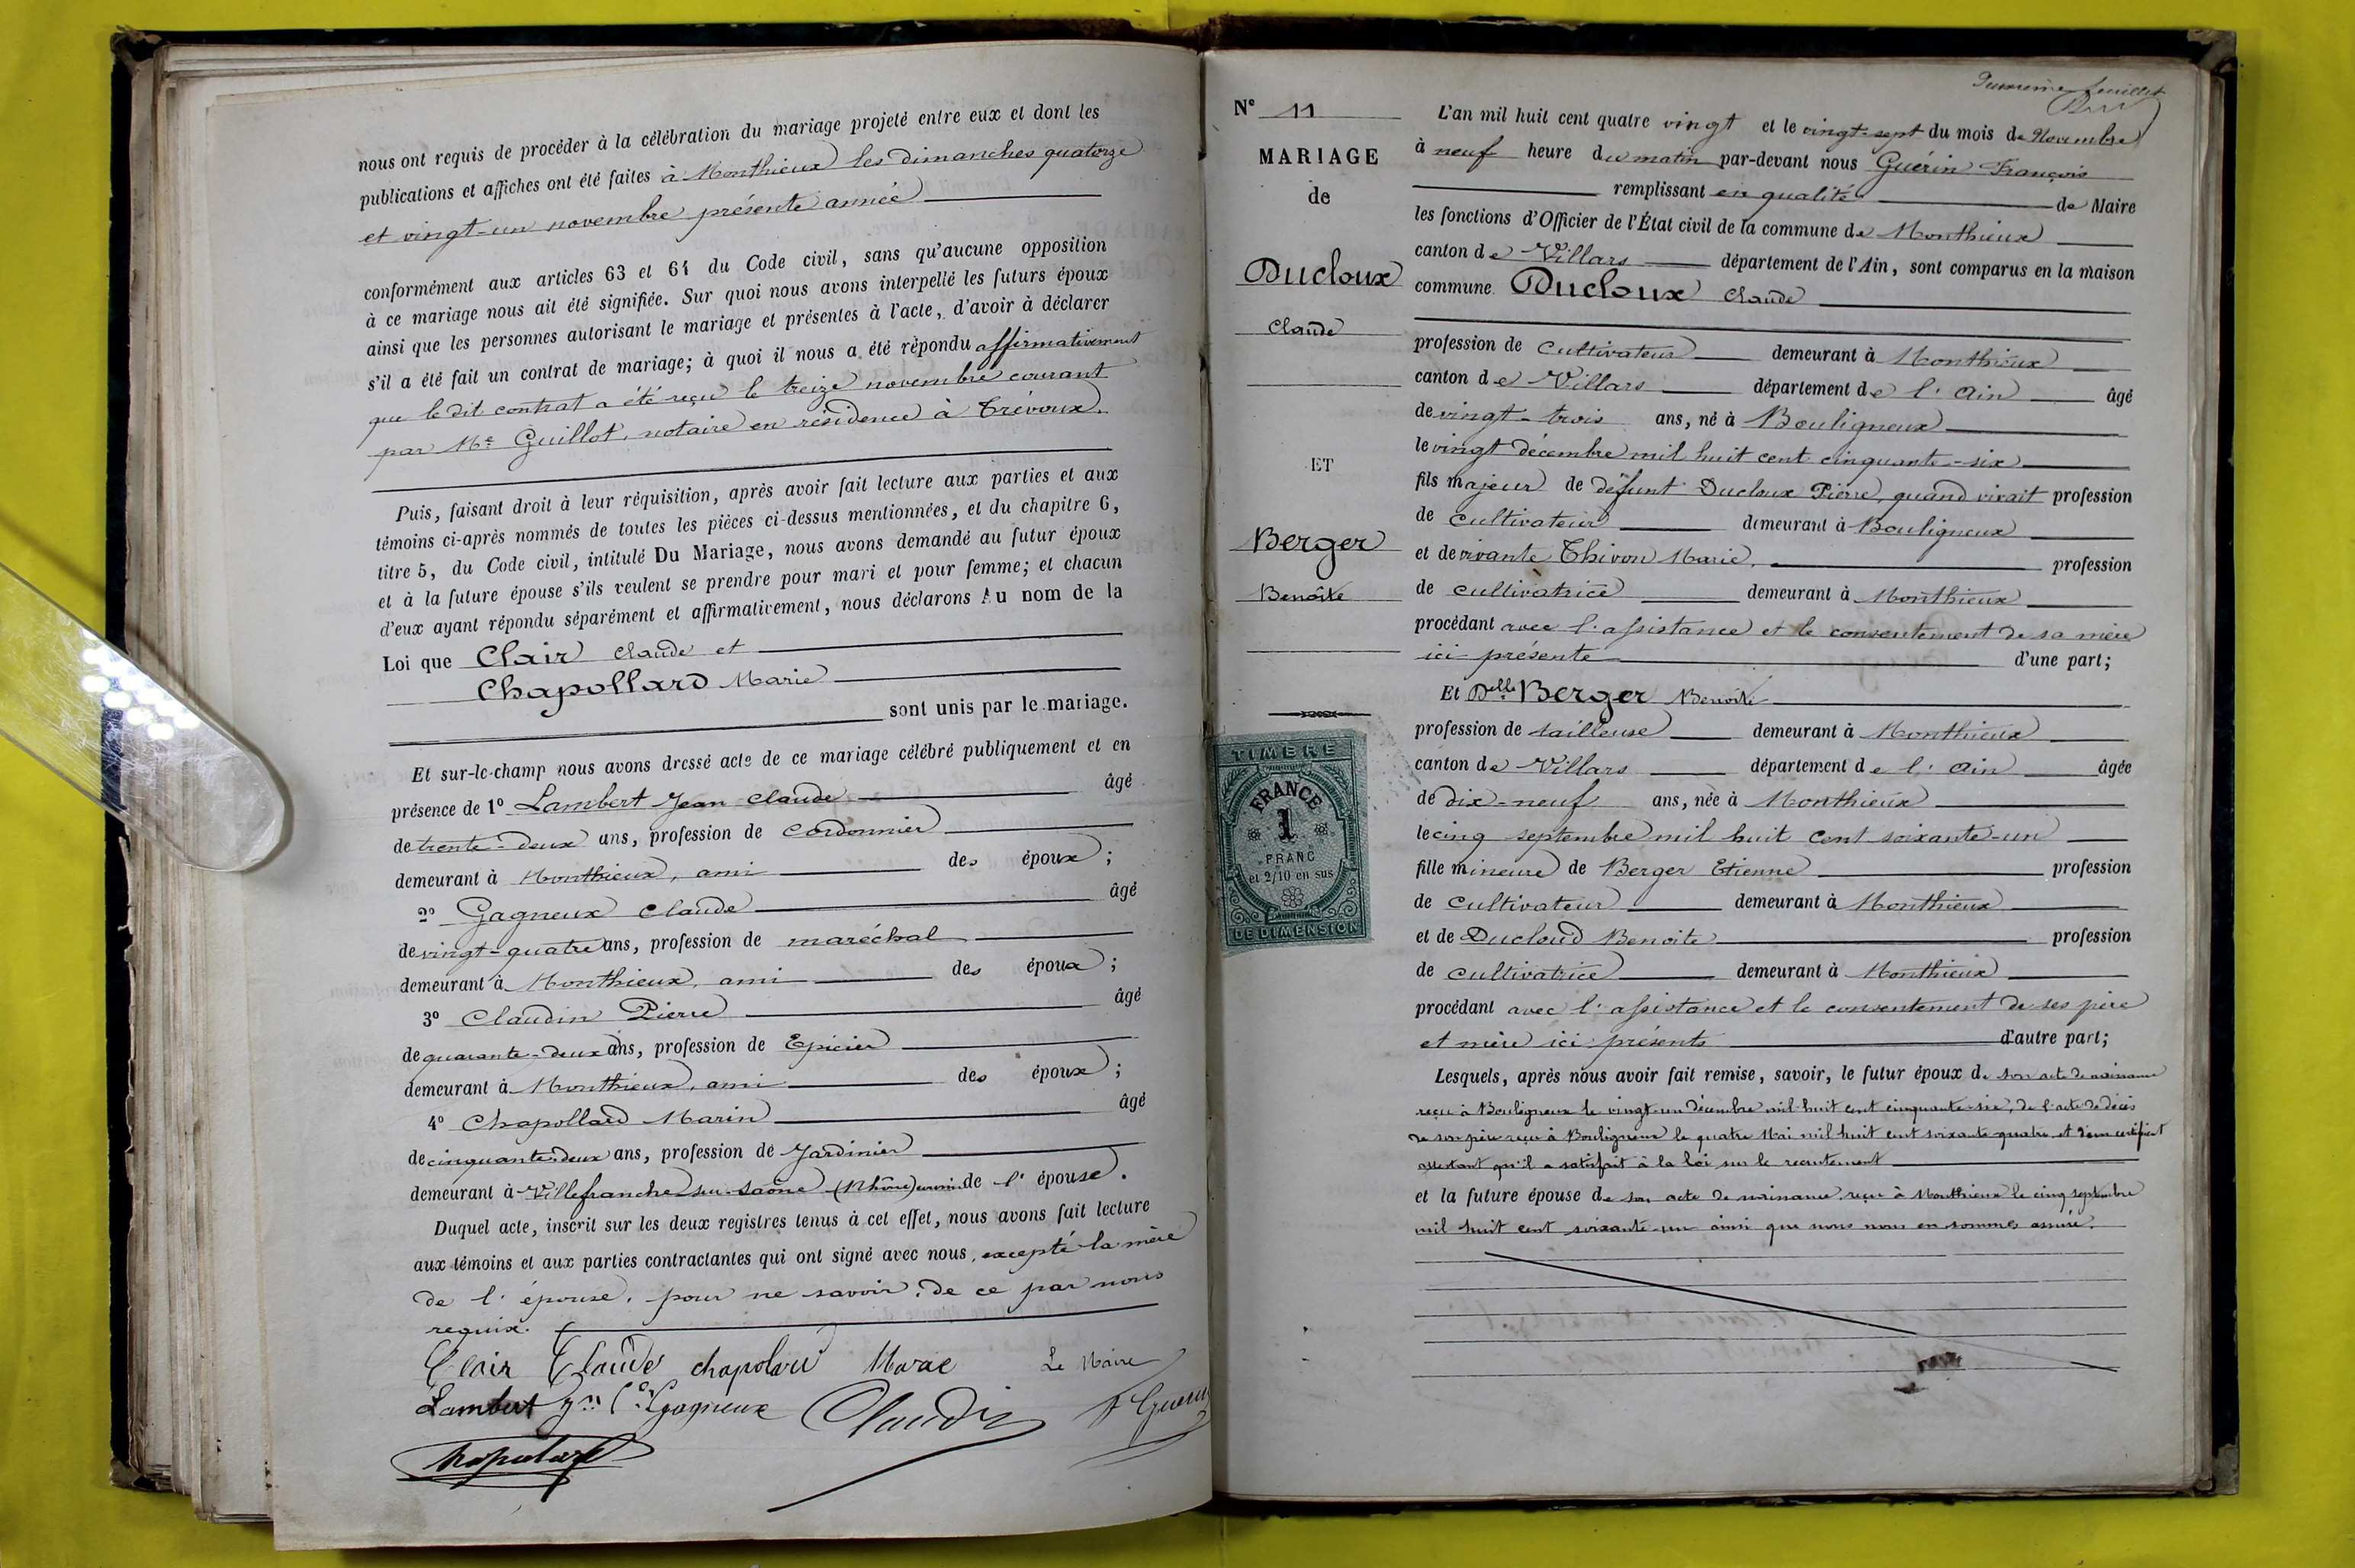 nous ont requis de procéder à la célébration du mariage projeté entre eux et dont les
publications et affiches ont été faites à Monthieux les dimanches quatorze
et vingt-un novembre présente année
conformément aux articles 63 et 64 du Code civil, sans qu'aucune opposition
à ce mariage nous ait été signifiée. Sur quoi nous avons interpellé les futurs époux
ainsi que les personnes autorisant le mariage et présentes à l'acte, d'avoir à déclarer
s'il a été fait un contrat de mariage; à quoi il nous a été répondu affirmativement
que le dit contrat a été reçu le treize novembre courant
par Me Guillot, notaire en résidence à Trévoux.
Puis, faisant droit à leur réquisition, après avoir fait lecture aux parties et aux
témoins ci-après nommés de toutes les pièces ci-dessus mentionnées, et du chapitre 6,
titre 5, du Code civil, intitulé Du Mariage, nous avons demandé au futur époux
et à la future épouse s'ils veulent se prendre pour mari et pour femme; et chacun
d'eux ayant répondu séparément et affirmativement, nous déclarons Au nom de la
Loi que Clair Claude et
Chapollard Marie
sont unis par le mariage.
Et sur-le-champ nous avons dressé acte de ce mariage célébré publiquement et en
présence de 1° Lambert Jean Claude âgé
de trente-deux ans, profession de Cordonnier
demeurant à Monthieux, ami des époux;
2° Gagneux Claude âgé
de vingt-quatre ans, profession de maréchal
demeurant à Monthieux, ami des époux;
3° Claudin Pierre âgé
de quarante-deux ans, profession de Epicier
demeurant à Monthieux, ami des époux;
4° Chapollard Marin âgé
de cinquante-deux ans, profession de Jardinier
demeurant à Villefranche sur Saône (Rhône) de l'épouse.
Duquel acte, inscrit sur les deux registres tenus à cet effet, nous avons fait lecture
aux témoins et aux parties contractantes qui ont signé avec nous, excepté la mère
de l'épouse, pour ne savoir, de ce par nous
requis.
Clair Claude chapolard Marie Le Maire
Lambert Gagneux Claudin F Guerin
N° 11
MARIAGE
de
Ducloux
Claude
ET
Berger
Benoîte
TIMBRE
FRANCE
1
FRANC
et 2/10 en sus
DE DIMENSION
feuillet
L'an mil huit cent quatre vingt et le vingt-sept du mois de Novembre
à neuf heure du matin par-devant nous Guérin François
remplissant en qualité de Maire
les fonctions d'Officier de l'État civil de la commune de Monthieux
canton de Villars département de l'Ain, sont comparus en la maison
commune Ducloux Claude
profession de Cultivateur demeurant à Monthieux
canton de Villars département de l'Ain âgé
de vingt-trois ans, né à Bouligneux
le vingt décembre mil huit cent cinquante-six
fils majeur de défunt Ducloux Pierre, quand vivait profession
de cultivateur demeurant à Bouligneux
et de vivante Thivon Marie, profession
de cultivatrice demeurant à Monthieux
procédant avec l'assistance et le consentement de sa mère
ici présente d'une part;
Et Delle Berger Benoîte
profession de tailleuse demeurant à Monthieux
canton de Villars département de l'Ain âgée
de dix-neuf ans, née à Monthieux
le cinq septembre mil huit cent soixante-un
fille mineure de Berger Etienne profession
de Cultivateur demeurant à Monthieux
et de Ducloud Benoite profession
de cultivatrice demeurant à Monthieux
procédant avec l'assistance et le consentement de ses père
et mère ici présents d'autre part;
Lesquels, après nous avoir fait remise, savoir, le futur époux de son acte de naissance
reçu à Bouligneux le vingt-un décembre mil huit cent cinquante-six, de l'acte de décès
de son père reçu à Bouligneux le quatre Mai mil huit cent soixante quatre et d'un certificat
attestant qu'il a satisfait à la loi sur le recrutement
et la future épouse de son acte de naissance reçu à Monthieux le cinq septembre
mil huit cent soixante-un ainsi que nous nous en sommes assuré.